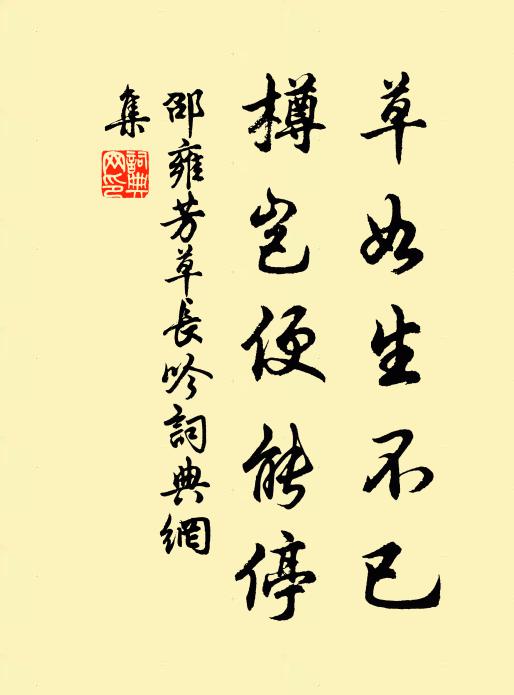 草如生不已
樽岂便能停
邵雍芳草長吟詞典網
集
詞典
网印